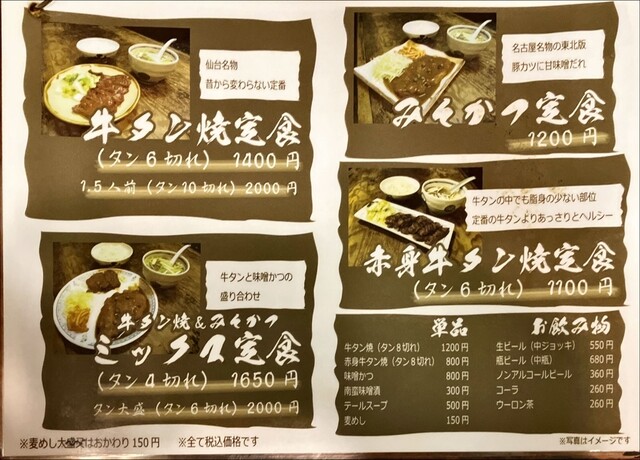 仙台名物
昔から変わらない定番
牛タン焼定食
(タン6切れ) 1400円
1.5人前(タン10切れ) 2000円
名古屋名物の東北版
豚カツに甘味噌だれ
みそかつ定食
1200円
牛タンの中でも脂身の少ない部位
定番の牛タンよりあっさりとヘルシー
赤身牛タン焼定食
(タン6切れ) 1100円
牛タンと味噌かつの
盛り合わせ
牛タン焼&みそかつ
ミックス定食
(タン4切れ) 1650円
タン大盛(タン6切れ) 2000円
単品
牛タン焼(タン8切れ) 1200円
赤身牛タン焼(タン8切れ) 800円
味噌かつ 800円
南蛮味噌漬 300円
テールスープ 500円
麦めし 150円
お飲み物
生ビール(中ジョッキ) 550円
瓶ビール(中瓶) 680円
ノンアルコールビール 360円
コーラ 260円
ウーロン茶 260円
※麦めし大盛又はおかわり150円 ※全て税込価格です
※写真はイメージです